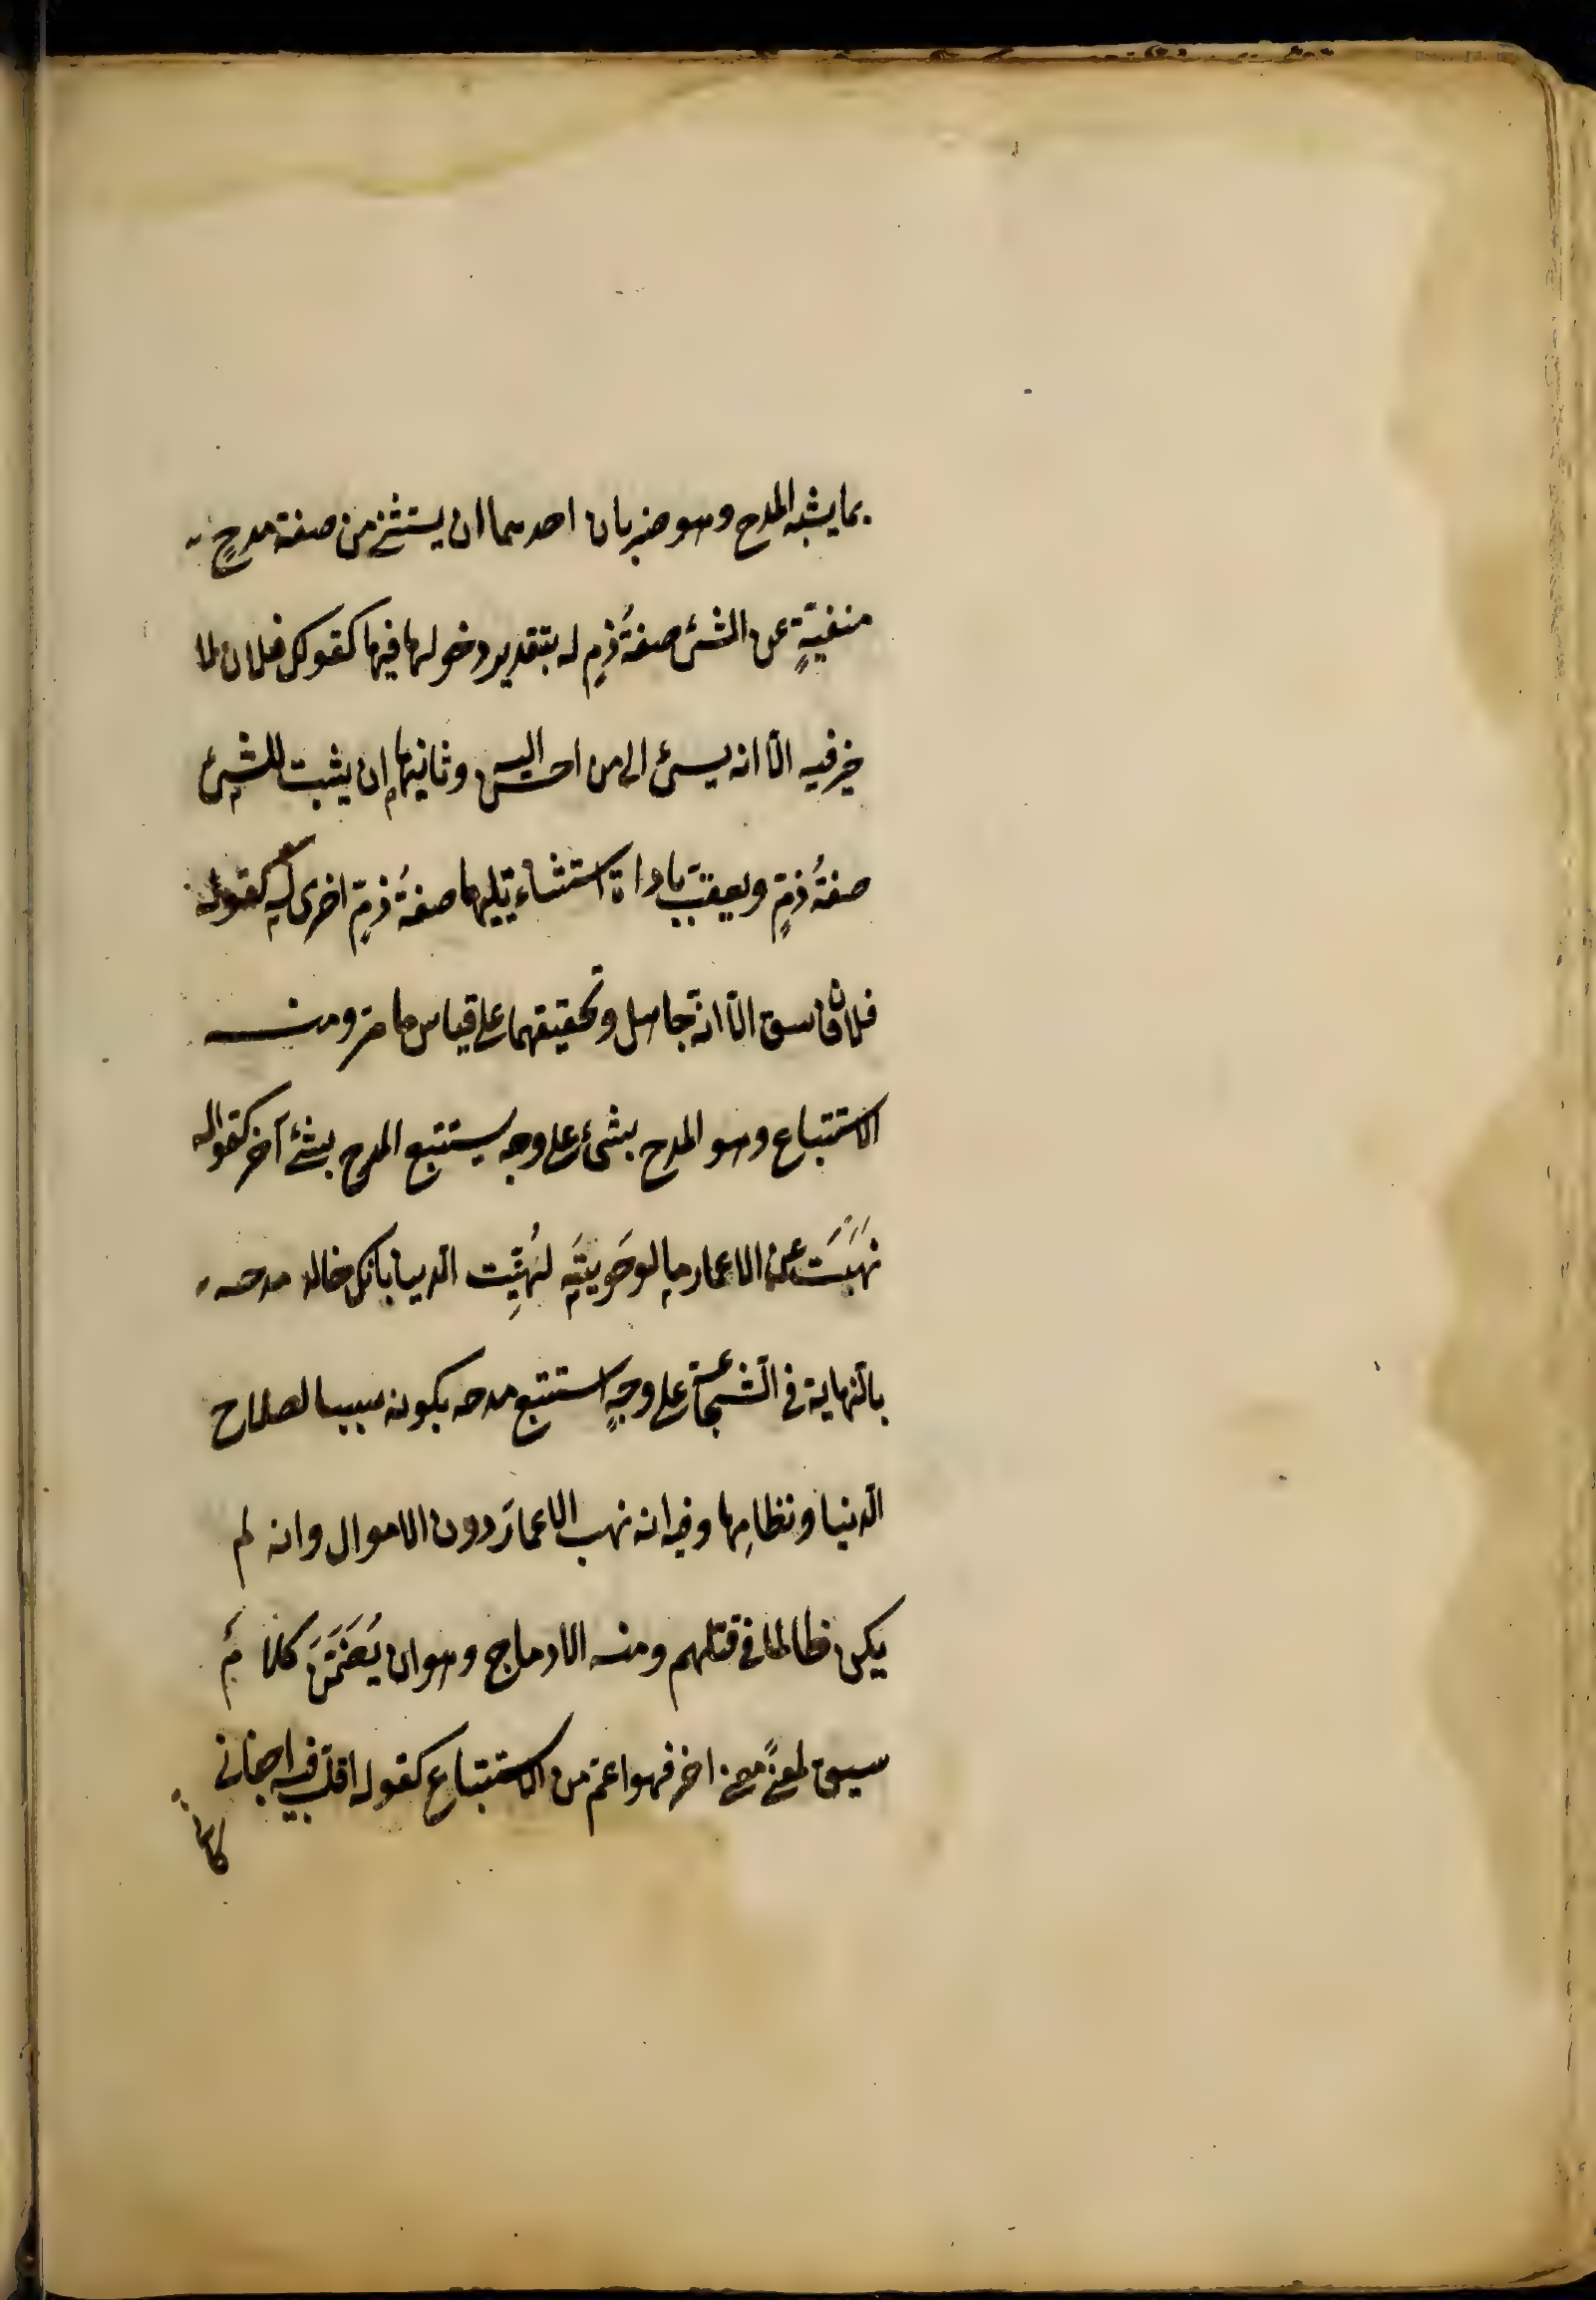 بما يشبه المدح وهو ضربان احدهما ان يستثنى من صفة مدحٍ
منفيّةٍ عن الشئ صفةُ ذمٍ له بتقدير دخولها فيها كقولك فلان لا
خير فيه الّا انه يسئ الى من احسن اليه وثانيهما ان يثبت للشئ
صفةُ ذمٍّ ويعقبَ باداة استثناءٍ تليها صفةُ ذمٍّ اخرى له كقوله
فلانٌ فاسق الّا انّه جاهل وتحقيقهما على قياس ما مرّ ومنه
الاستتباع وهو المدح بشئ على وجه يستتبع المدح بشئ آخر كقوله
نَهَبْتَ من الاعمار ما لو حَوَيْتَه لَهُنِّئت الدنيا بانك خالد مدحه
بالنّهاية فى الشجاعة على وجهٍ استتبع مدحه بكونه سببا لصلاح
الدّنيا ونظامِها وفيه انه نهب الاعمارَ دون الاموال وانه لم
يكن ظالما فى قتلهم ومنه الادماج وهو ان يُضَمَّنَ كلامٌ
سيق لمعنًى معنى اخر فهو اعمّ من الاستتباع كقوله اقلّب فيه اجفانى
كانّى